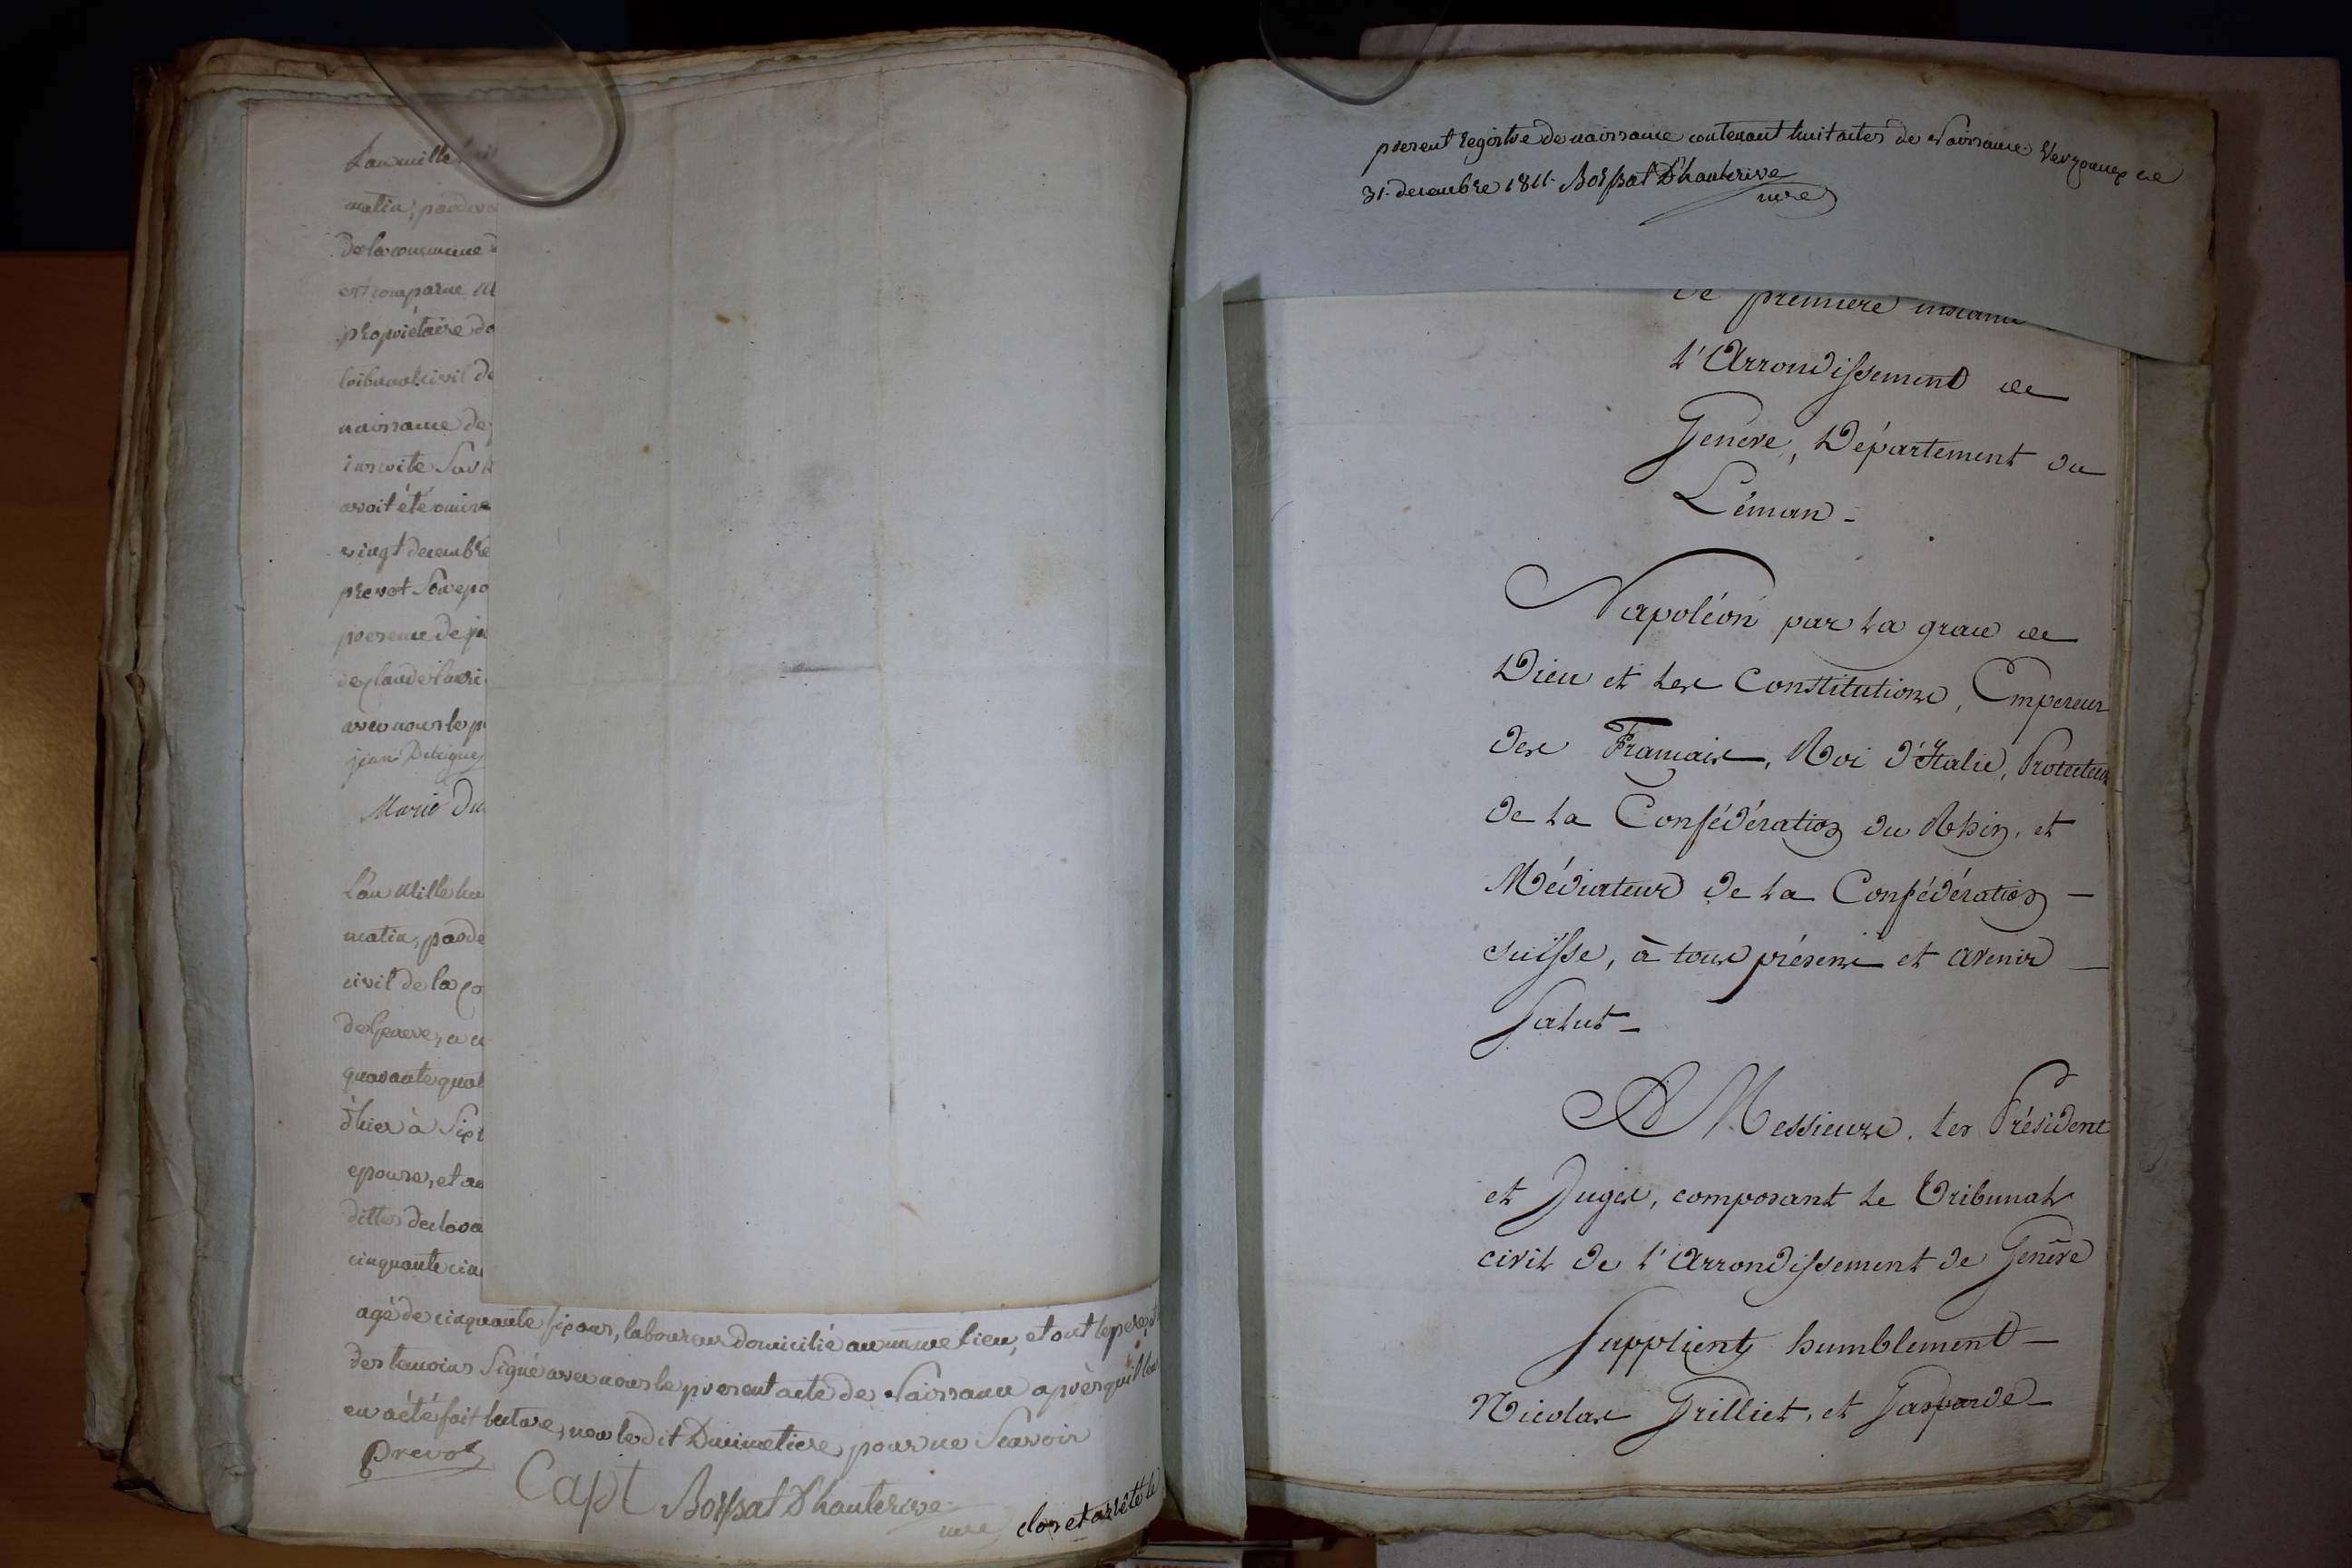 L'an mille
matin, pardeva
de la commune
est comparue M
propriétaire do
tribunal civil de
naissance de
inscrite Sur l
avoit été omise
vingt decembre
prevot Son epo
presence de je
avec nous le p
jean Deleigne
Marie Du
L'an Mille hu
matin, parde
civil de la co
de Geneve, a c
quarante quat
d'hier à Six
epouse, et au
cinquante cin
agé de cinquante six ans, laboureur domicilié au même lieu, et ont le pere, et
des temoins Signé avec nous le present acte de Naissance après qu'il leur
en a été fait lecture, non le dit Dunimetiere pour ne Scavoir
Prevot
Capt Boissat D'hauterive
mre
clos et arrêté le
present registre de naissance contenant huit actes de Naissance Versonnex ce
31. decembre 1811. Boissat D'hauterive
mre
de premiere instance
l'Arrondissement de
Genève, Département du
Léman -
Napoléon par la grace de
Dieu et les Constitutions, Empereur
des Francais, Roi d'Italie, Protecteur
de la Confédération du Rhin, et
Médiateur de la Confédération —
suisse, à tous présens et avenir —
Salut -
A Messieurs les Président
et Juges, composant le Tribunal
civil de l'Arrondissement de Genève
Supplient humblement —
Nicolas Grilliet, et Gasparde —